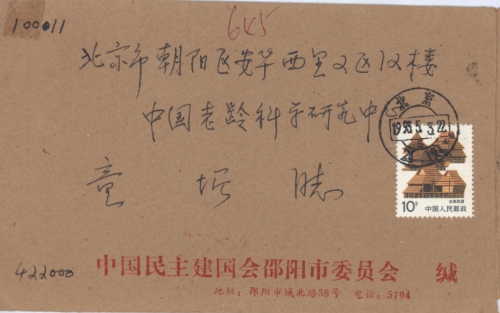 100011
645
北京市朝阳区安华西里2区12楼
中国老龄科学研究中心
北京
1993.5.3.22
童
10分
中国人民邮政
422000
中国民主建国会邵阳市委员会 缄
地址：邵阳市城北路35号 电话：5704